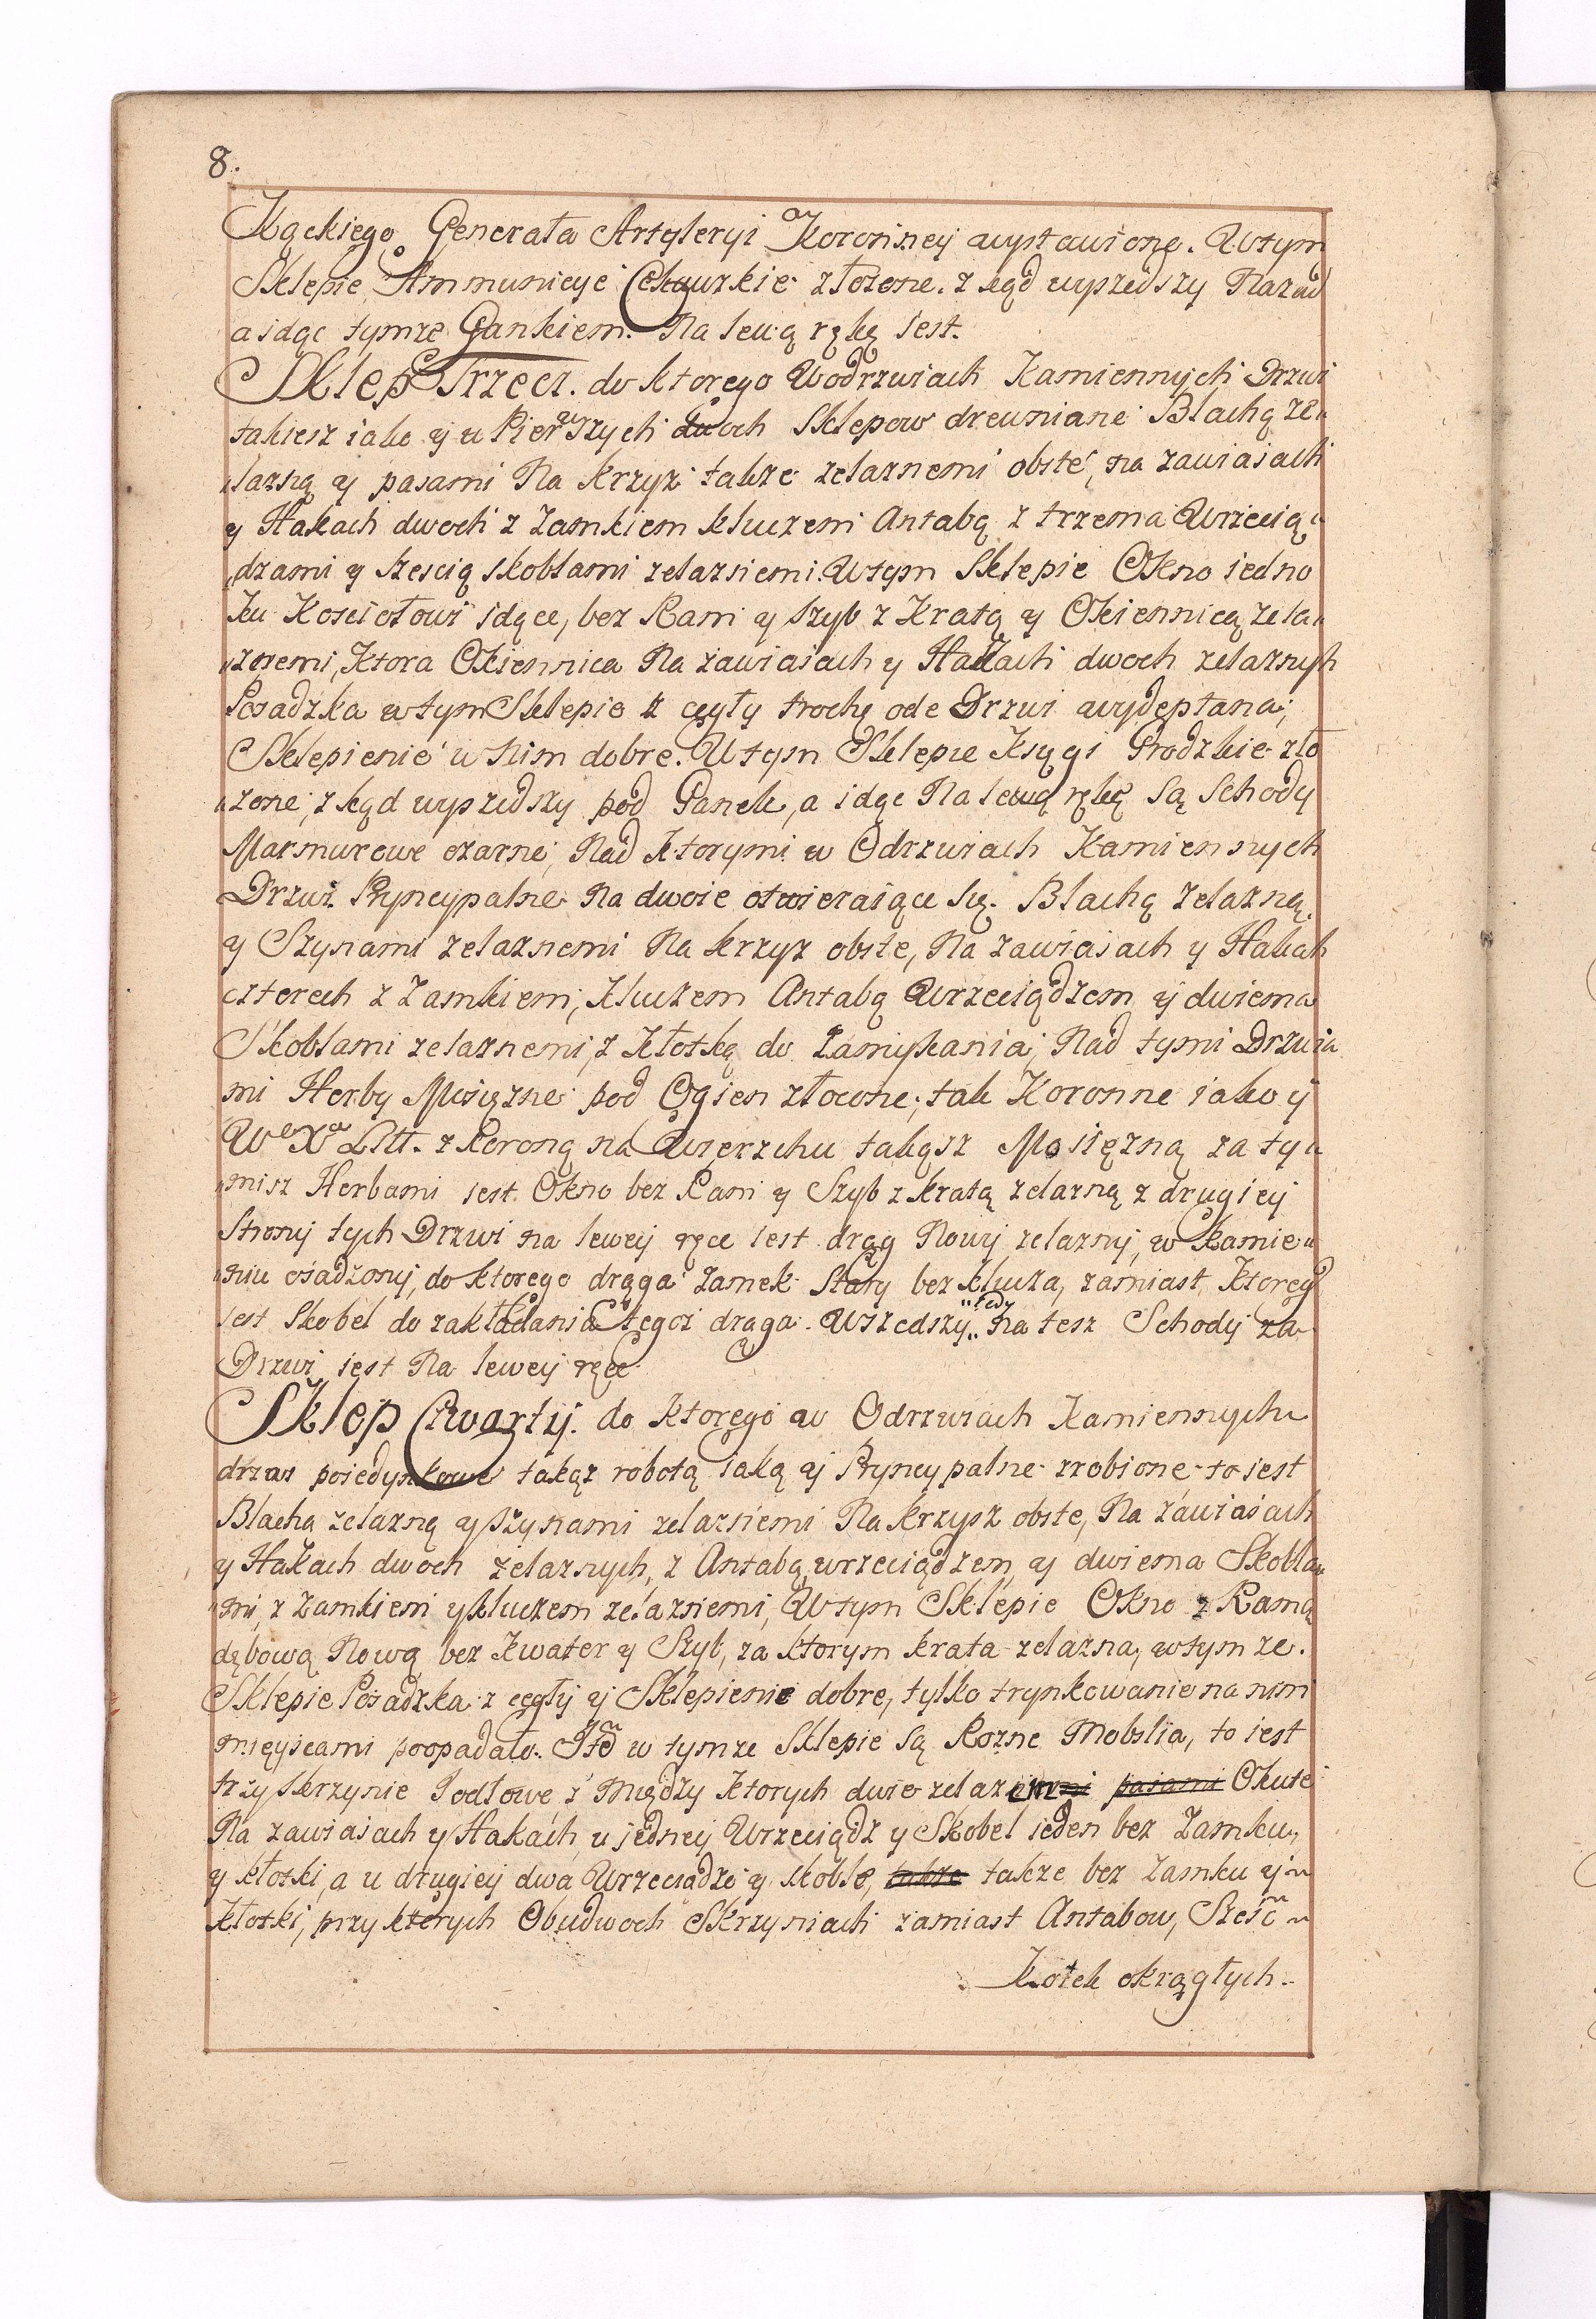 8.
Kąckiego Generała Artyleryi Koronney wystawione. Wtym
Sklepie Ammunicye Cekauzkie złożone. z kąd wyszedszy Nazad
a idąc tymże Gankiem. Na lewą rękę iest.
Sklep Trzeci. do ktorego Wodrzwiach Kamiennych Drzwi
takiesz iako y u Pierwszych dwoch Sklepow drewniane Blachą że„
„lazną y pasami Na krzyż także żelaznemi obite, na zawiasach
y Hakach dwoch z Zamkiem kluczem Antabą z trzema Wrzecią„
„dzami y sześcią skoblami żelaznemi. Wtym Sklepie Okno iedno
ku Kosciołowi idące, bez Ram y szyb z Kratą y Okiennicą żela„
„znemi, Ktora Okiennica Na zawiasach y Hakach dwoch żelaznych
Posadzka w tym Sklepie z cegły trochę ode Drzwi wydeptana;
Sklepienie w nim dobre. Wtym Sklepie Księgi Grodzkie zło
„zone; z kąd wyszedszy pod Ganek, a idąc Na lewą rękę Są Schody
Marmurowe czarne, Nad ktorymi w Odrzwiach Kamiennych
Drzwi Pryncypalne Na dwoie otwieraiące się. Blachą żelazną
y Szynami żelaznemi Na krzyż obite, Na zawiasach y Hakach
czterech z Zamkiem, Kluczem Antabą Wrzeciądzem y dwiema
Skoblami żelaznemi, z Kłotką do zamykania, Nad tymi Drzwia
mi Herby Mosiężne pod Ogien złocone; tak Koronne iako y
W° X° Litt. z Koroną na Wierzchu takąsz Mosiężną za ty„
„misz Herbami iest Okno bez Ram y Szyb z kratą żelazną z drugiey
Strony tych Drzwi na lewey ręce iest drąg Nowy żelazny, w Kamie„
„niu osadzony, do ktorego drąga Zamek Stary bez klucza, zamiast, ktorego
iest Skobel do zakładania tegoż drąga. Wszedszy „tedy„ Na tesz Schody za
Drzwi iest Na lewey ręce
Sklep Czwarty. do ktorego w Odrzwiach Kamiennych
drzwi poiedynkowe takąz robotą iaką y Pryncypalne zrobione to iest
Blachą żelazną y szynami żelaznemi Na krzysz obite, Na zawiasach
y Hakach dwoch żelaznych, z Antabą, wrzeciądzem, y dwiema Skobla„
„mi, z Zamkiem y kluczem żelaznemi, Wtym Sklepie Okno z Ramą
dębową Nową bez kwater y Szyb, za ktorym krata żelazna, w tymże.
Sklepie Posadzka z cegły y Sklepienie dobre, tylko trynkowanie na nim
mieyscami poopadało. Itd w tymże Sklepie są Rozne Mobilia, to iest
trzy skrzynie Jodłowe z między ktorych dwie żelazem pasami Okute
Na zawiasach y Hakach, u jedney Wrzeciądz y Skobel ieden bez Zamku,
y kłotki, a u drugiey dwa Wrzeciądze y skoble, także także bez Zamku y
kłotki, przy ktorych Obudwoch Skrzyniach zamiast Antabow, Sześć
Kołek okrągłych.